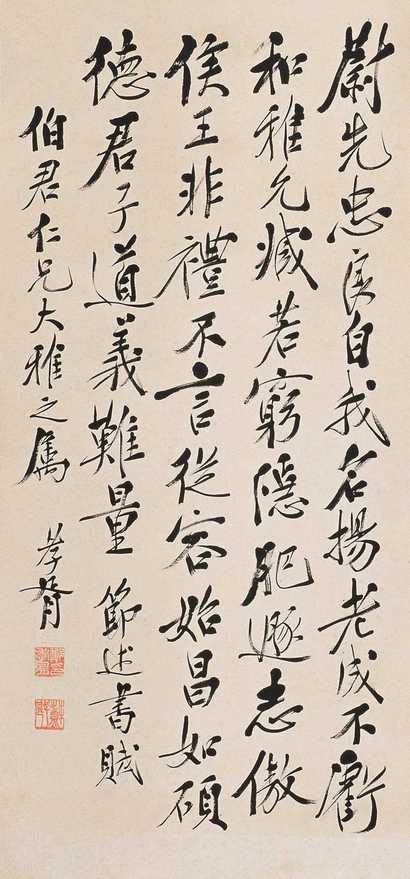 尉先忠良自我名揚老成不衒
和雅允臧若窮隱肥遯志傲
侯王非禮不言從容始昌如碩
德君子道義難量 節述書賦
伯君仁兄大雅之屬 孝胥